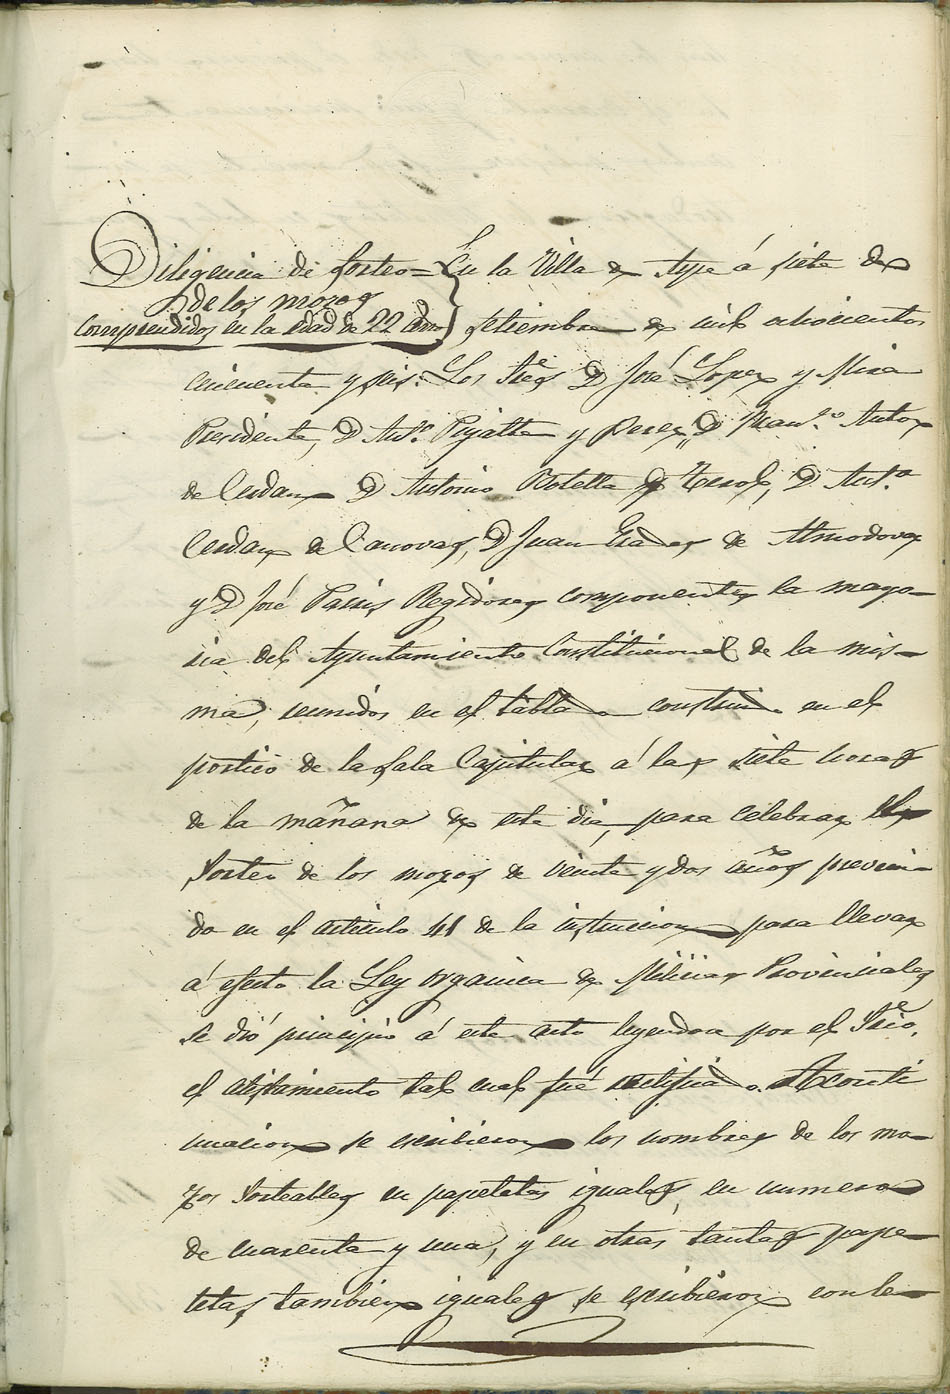 Diligencia de sorteo = En la Villa de Aspe á siete de
de los mozos
comprendidos en la edad de 22 años
Setiembre de mil ochocientos
cincuenta y seis: Los Sres D José Lopez y Mira
Presidente, D Anto Pujalte y Perez, D Manl Autor
de Cerdan D Antonio Botella y Terol, D Anto
Cerdan de Canovas, D Juan Grades de Almodovar
y D José Pavis Regidores componentes la mayo-
ria del Ayuntamiento Constitucional de la mis-
ma, reunidos en el tablado construido en el
portico de la Sala Capitular á las siete horas
de la mañana de este dia, para celebrar el
Sorteo de los mozos de veinte y dos años preveni-
do en el articulo 41 de la instruccion para llevar
á efecto la Ley organica de Milicias Provinciales
se dió principio á este acto leyendose por el Srio.
el alistamiento tal cual fué rectificado. A conti
nuacion se escribieron los nombres de los mo-
zos Sorteables en papeletas iguales, en numero
de cuarenta y una, y en otras tantas pape-
letas tambien iguales se escribieron con le-